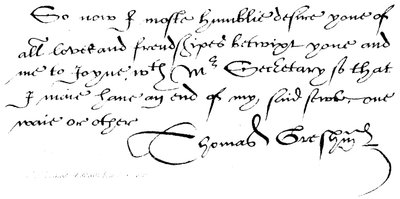 So now I moste humblie desire yone of
all loves and freudshipes betwixt yone and
me to Joyne wth Mr Secretary so that
I maie have an end of my said sewte one
waie or other
Thomas Gresham